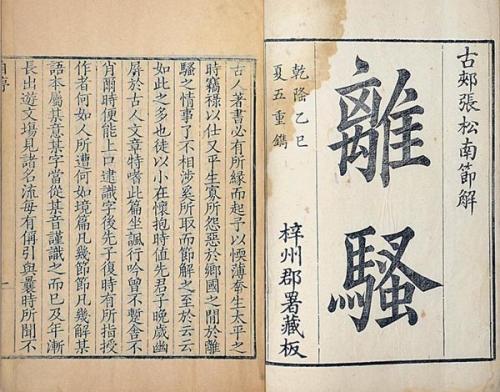 古郟張松南節解
離騷
乾隆乙巳
夏五重鐫
梓州郡署藏板
古人著書必有所緣而起予以薄生太平之
時竊祿以仕又平生寡所怨惡於鄉國之間於離
騷之情事了不相涉奚所取而節解之至於云云
如此之多也徒以小在懷抱時值先君子晚歲幽
屏於古人文章特嗜此篇坐諷行吟曾不暫舍不
肖爾時便能上口逮識字後先子復時有所指授
作者何如人所遭何如境篇凡幾節節凡幾解某
語本屬某意某字當從某音謹識之而已及年漸
長出遊文場見諸名流每有偁引與曩時所聞不